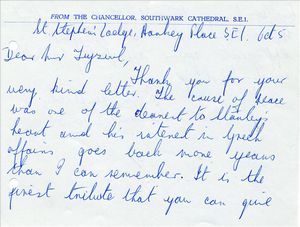 FROM THE CHANCELLOR, SOUTHWARK CATHEDRAL, S.E.1.
St. Stephen's Lodge, Hankey Place SE1. Oct 5
Dear Mr
Thank you for your
very kind letter. The cause of peace
was one of the dearest to Stanley's
heart and his interest in Greek
affairs goes back more years
than I can remember. It is the
finest tribute that you can give